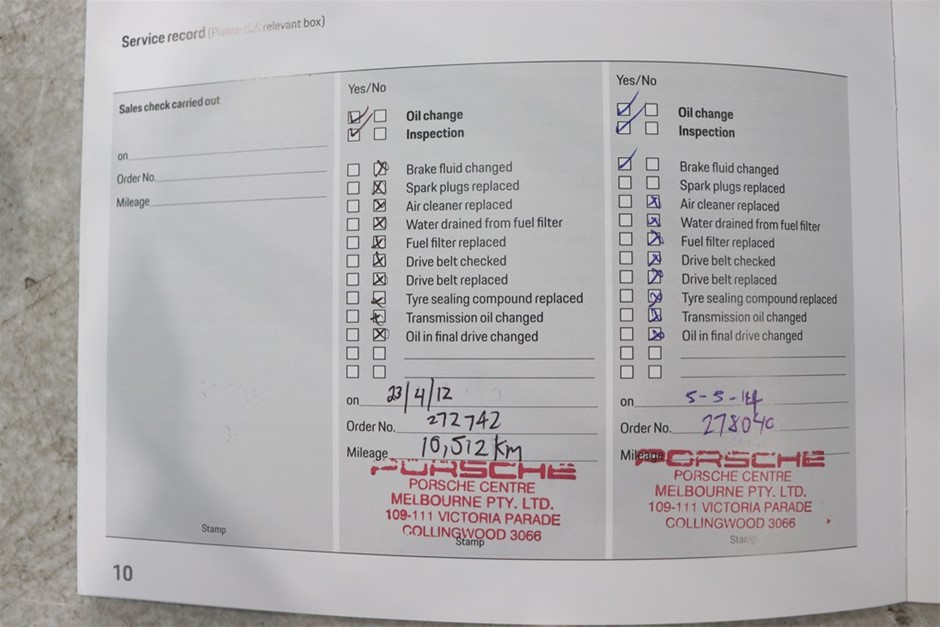 Service record (Please tick relevant box)
Sales check carried out
on
Order No.
Mileage
Stamp
Yes/No
Oil change
Inspection
Brake fluid changed
Spark plugs replaced
Air cleaner replaced
Water drained from fuel filter
Fuel filter replaced
Drive belt checked
Drive belt replaced
Tyre sealing compound replaced
Transmission oil changed
Oil in final drive changed
on 23/4/12
Order No. 272742
Mileage 10,512 km
PORSCHE
PORSCHE CENTRE
MELBOURNE PTY. LTD.
109-111 VICTORIA PARADE
COLLINGWOOD 3066
Stamp
Yes/No
Oil change
Inspection
Brake fluid changed
Spark plugs replaced
Air cleaner replaced
Water drained from fuel filter
Fuel filter replaced
Drive belt checked
Drive belt replaced
Tyre sealing compound replaced
Transmission oil changed
Oil in final drive changed
on 5-5-14
Order No. 278040
Mileage
PORSCHE
PORSCHE CENTRE
MELBOURNE PTY. LTD.
109-111 VICTORIA PARADE
COLLINGWOOD 3066
Stamp
10